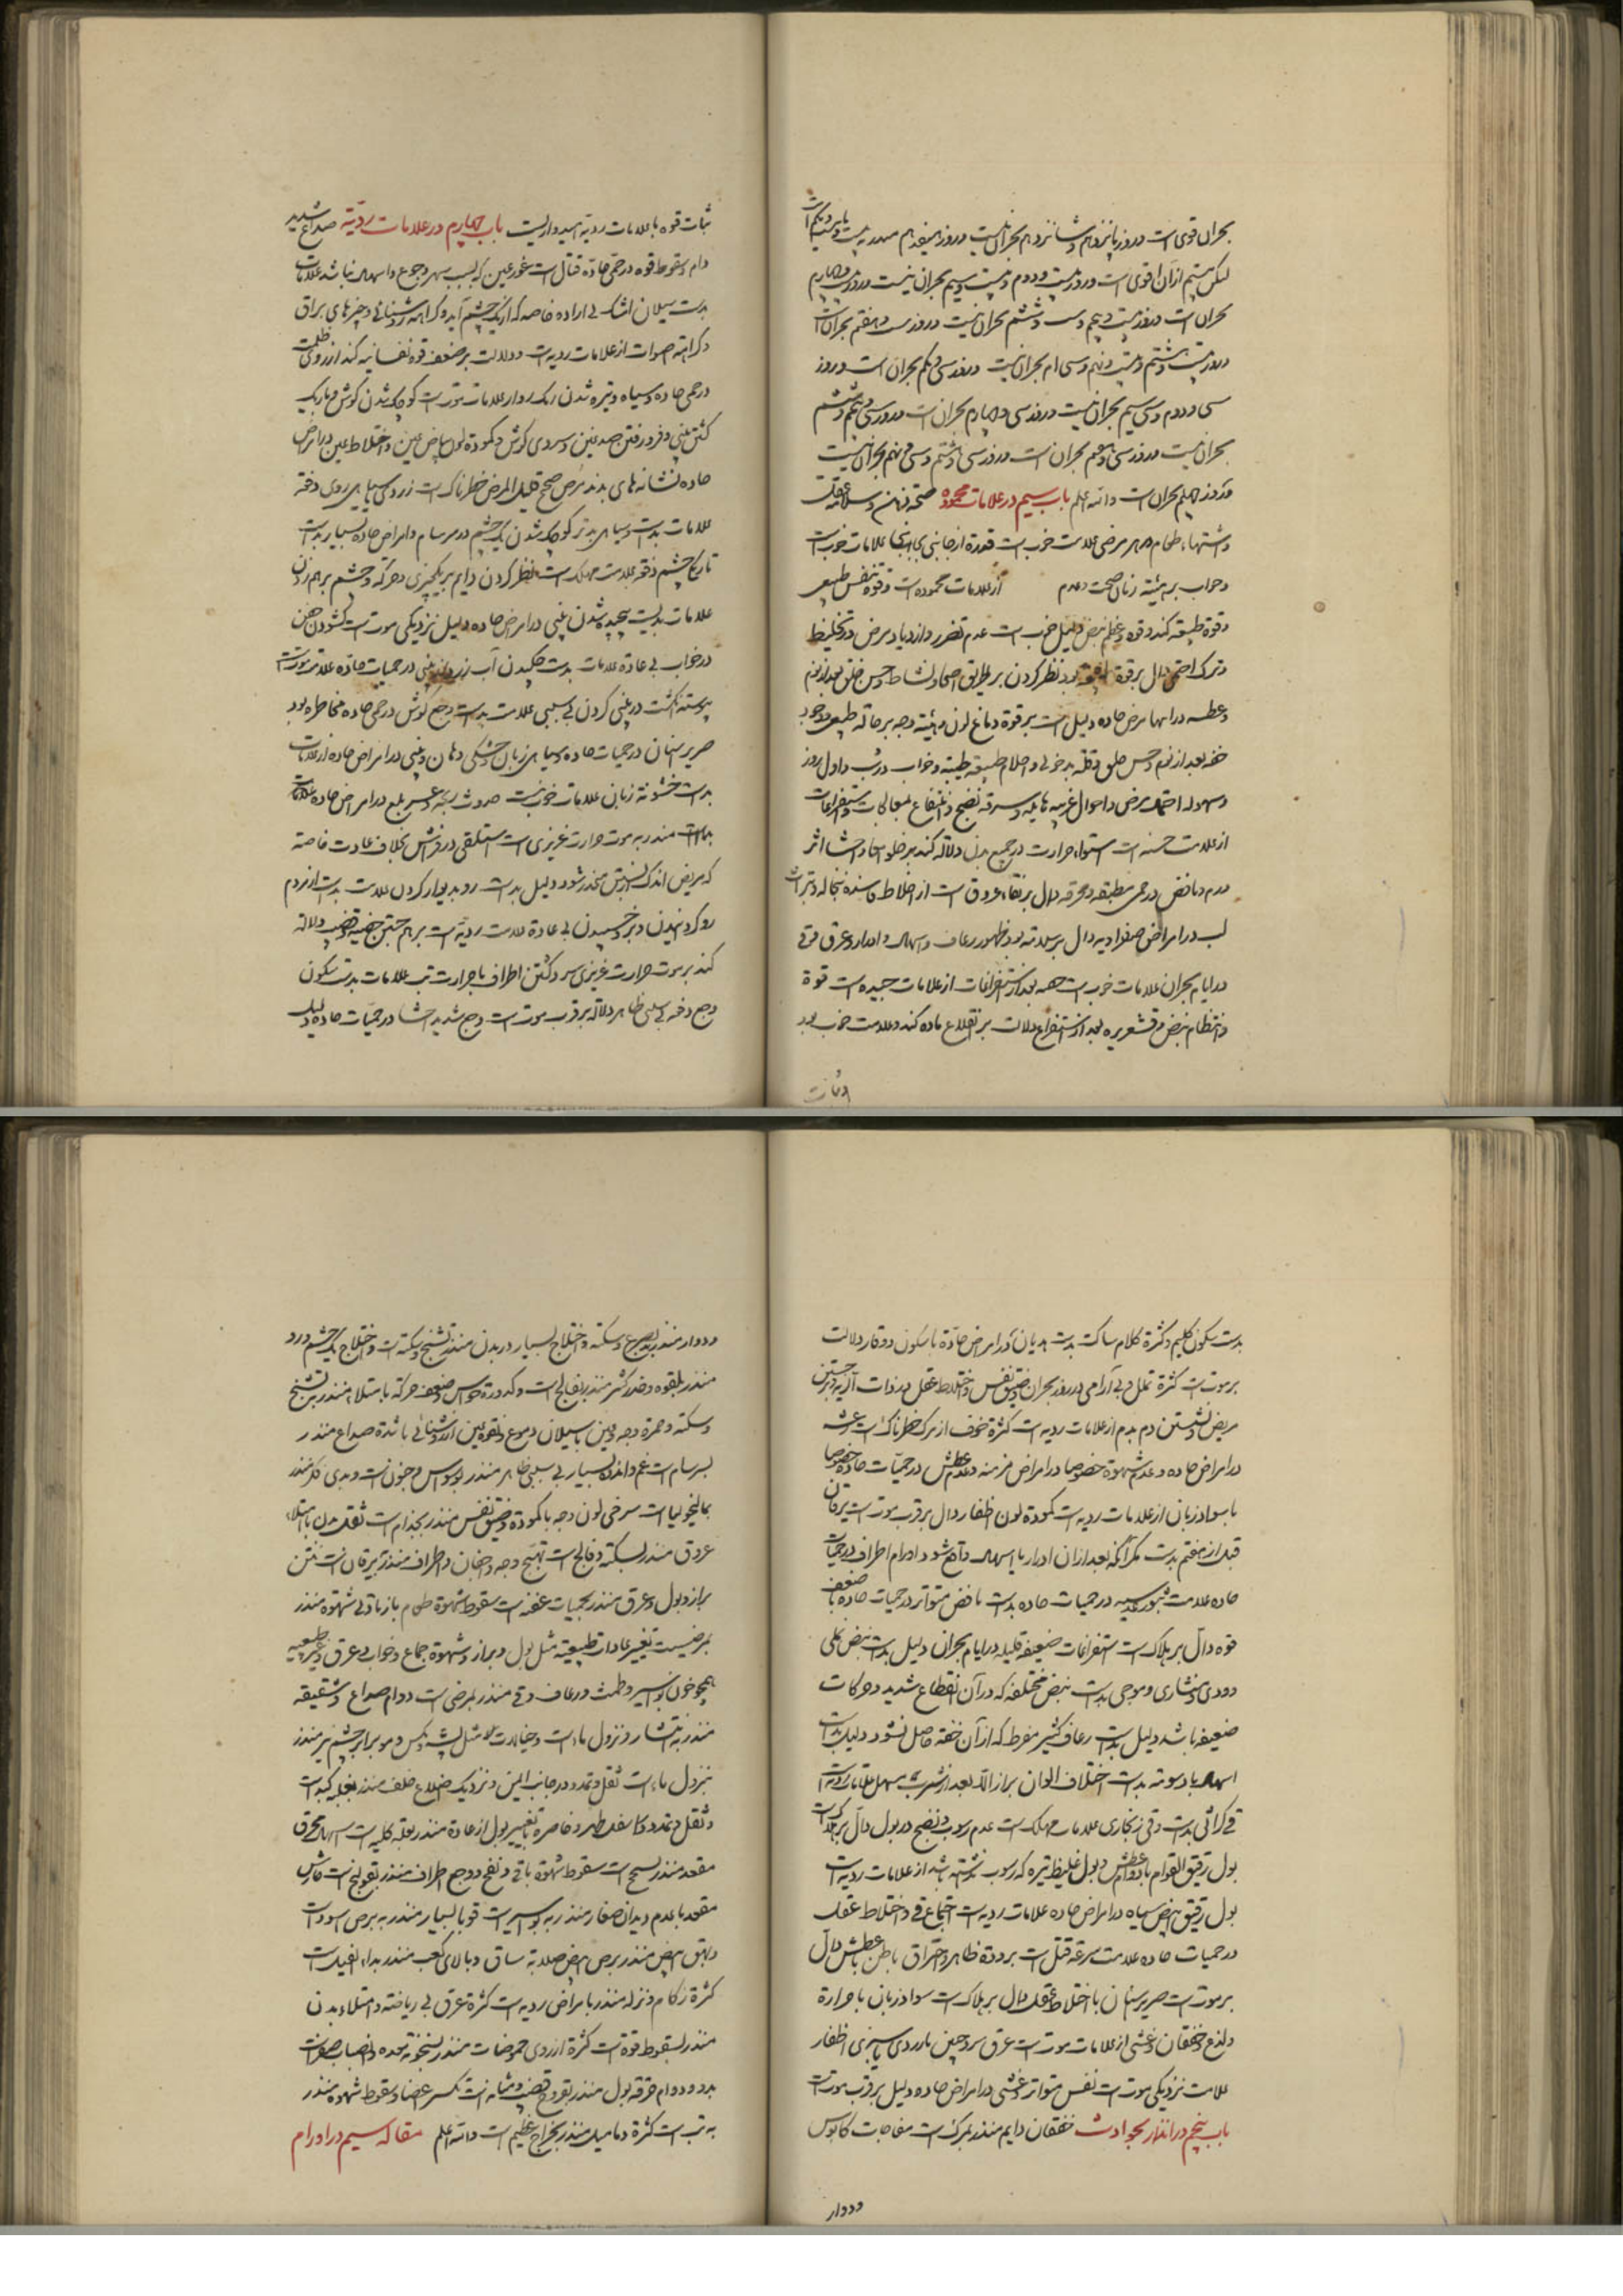 بحران قوی است و روز پانزدهم و شانزدهم بحران نیست و روز هفدهم منذر به بیستم یا بیست و یکم است
لیکن بیستم ازان اقوی است و روز بیست و دوم و بیست و سیم بحران نیست و روز بیست و چهارم
بحران است و روز بیست و پنجم و بیست و ششم بحران نیست و روز بیست و هفتم بحران است
و روز بیست و هشتم و بیست و نهم و سی ام بحران نیست و روز سی و یکم بحران است و روز
سی و دوم و سی و سیم بحران نیست و روز سی و چهارم بحران است و روز سی و پنجم و ششم
بحران نیست و روز سی و هفتم بحران است و روز سی و هشتم و سی و نهم بحران نیست
و روز چهلم بحران است والله اعلم باب سیم در علامات محموده صحة ذهن و سلامة عقل
و اشتهاء طعام در هر مرضی علامت خوب است قدرة از جانبی بجانبی علامات خوب است
و خواب بر هیئته زمان صحت و عدم از علامات محموده است و قوة تنفس طبیعی
و قوة طبیعه کند و قوه و عظم نبض دلیل خوب است عدم تضرر و ازدیاد مرض در تخلیط
و ترک احتمی دال بر قوة بود نظر کردن بر طریق اصحا و نشاط و حسن خلق بعد از نوم
و عطسه در انتهاء مرض حاده دلیل است بر قوة دماغ لون و هیئة وجه بر حالة طبیعی و وجود
خفه بعد از نوم و حسن خلق و قلة بدخوئی و احلام طبیعیه طیبه و خواب در شب و اول روز
و سهولة احتمال مرض و احوال غریبه هایله و سرعة نضج و انتفاع بمعالجات و استفراغات
از علامت حسنه است استواء حرارت در جمیع بدن دلالة کند بر خلو احشا اثر
ورم و نافض در حمی مطبقه و محرقه دال بر نقاء عروق است از اخلاط فاسده نخاله و تبرات
لب در امراض صفراویه دال بر سلامة بود ظهور رعاف و اسهال و ادرار و عرق و قی
در ایام بحران علامات خوب است همه بعد از استفراغات از علامات جیده است قوة
و انتظام نبض و قشعریره بعد از استفراغ دلالت بر انقلاع ماده کند و علامت خوب بود
و ثبات
ثبات قوه با علامات ردیة امیدواریست باب چهارم در علامات ردیّه صداع شدید
دام و سقوط قوه در حمّی حادّه قتّال است غور عین که بسبب سهر و جوع و اسهال نباشد علامات
بدست سیلان اشک بی اراده خاصه که از یک چشم آید و کراهة روشنائی و چیزهای براق
و کراهة اصوات از علامات ردیه است و دلالت بر ضعف قوة نفسانیه کند ارزوی ظلمت
در حمی حاده و سیاه و تیره شدن رنگ رو از علامات موتست کوچک شدن گوش و باریک
گشتن بینی و فرو رفتن صدغین و سردی گوش و کمودة لون بیاض عین و اختلاط عین در امراض
حاده نشانه های بدند مرض صحیح قلیل المرض خطرناک است زردی یا سیاهی روی دفعة
علامات بدست و سیاهی بدتر کوچک شدن یک چشم در سرسام و امراض حاده بسیار بدست
تاریکی چشم دفعة علامت مهلک است نظر کردن دایم بر یک چیزی و حرکة و چشم بر هم زدن
علامات بدیست پیچیده شدن بینی در امراض حاده دلیل نزدیکی موتست گشودن دهن
در خواب بی عادة علامات بدست چکیدن آب زرد از بینی در حمیات حاده علامت موتست
پیوسته انگشت در بینی کردن بی سببی علامت بدست وجع گوش در حمی حاده مخاطره بود
صریر اسنان در حمیات حاده و سیاهی زبان و خشکی دهان و بینی در امراض حاده از علامات
بدست خشونة زبان علامات خوب نیست حدوث ربو و عسر بلع در امراض حاده علامات
هلاک است منذر به موت حرارت غریزی است استلقی در فراش بخلاف عادت خاصه
که مریض اندک اندک بزیر منحدر شود دلیل بدست رو به دیوار کردن علامت بدست از مردم
رو گردانیدن و بر رو خسپیدن بی عادة علامت ردیه است بر هم جستن خصیه و قضیب دلالة
کند بر موت حرارت غریزی سرد گشتن اطراف با حرارت تب علامات بدست سکون
وجع دفعة بی سببی ظاهر دلالة بر قرب موتست وجع شدید احشا در حمیّات حاده دلیل
بدست سکون کلیم و کثرة کلام ساکت بدست هذیان در امراض حادّة با سکون و وقار دلالت
بر موتست کثرة تململ و بی آرامی در روز بحران و ضیق نفس و اختلاط عقل
مریض نشستن دم بدم از علامات ردیه است کثرة خوف از مرگ خطرناک است رعشه
در امراض حاده و عدم شهوة خصوصا در امراض مزمنه و عدم عطش در حمیّات حاده خصوصا
با سواد زبان از علامات ردیه است کمودة لون اظفار دال بر قرب موتست یرقان
قبل از هفتم بدست مگر آنکه بعد ازان ادرار یا اسهال واقع شود و اورام اطراف در حمیات
حاده علامت بثور عدسیه در حمیات حاده بدست نافض متواتر در حمیات حاده با ضعف
قوه دالّ بر هلاک است استفراغات ضعیفه قلیله در ایام بحران دلیل بدست نبض نملی
و دودی و منشاری و موجی بدست نبض مختلفه که در آن انقطاع شدید و حرکات
ضعیفه باشد دلیل بدست رعاف کثیر مفرط که از آن خفه حاصل نشود دلیل بدست
اسهال با دسومة بدست اختلاف الوان براز الّا بعد از شرب مسهل علامات ردیه است
قی کراثی بدست و قی زنجاری علامات مهلک است عدم رسوب و نضج در بول دالّ بر هلاکست
بول رقیق القوام با دوام عطش و بول غلیظ تیره که رسوب نداشته باشد از علامات ردیه است
بول رقیق ابیض و سیاه در امراض حاده علامات ردیه است اجتماع قی و اختلاط عقل
در حمیات حاده علامت سرعة قتل است برودة ظاهر و احتراق باطن با عطش دالّ
بر موتست صریر اسنان با اختلاط عقل دال بر هلاکست سواد زبان با حرارة
و لذع و خفقان و غشی از علامات موتست عرق سرد جبین با زردی یا سبزی اظفار
علامت نزدیکی موتست نفس متواتر و غشی در امراض حاده دلیل بر قرب موتست
باب پنجم در انذار بحوادث خفقان دایم منذر بمرگست مفاجات کابوس
و دوار
و دوار منذر بصرع و سکته و اختلاج بسیار در بدن منذر تشنج و سکته است و اختلاج یک چشم و رو
منذر بلقوه و خدر کثیر منذر بفالج است و کدورة حواس و ضعف حرکة با امتلاء منذر بتشنج
و سکته و حمرة وجه و عین با سیلان دموع و نفرة عین از روشنائی با شدة صداع منذر
بسرسام است غم و اندوه بسیار بی سببی ظاهر منذر بوسواس و جنون است و بدی فکر منذر
بمالیخولیاست سرخی لون وجه با کمودة و ضیق نفس منذر بجذام است ثقل بدن با امتلاء
عروق منذر بسکته و فالج است تهیّج وجه و اجفان و اطراف منذر است نتن
براز و بول و عرق منذر بحمیات عفنه است سقوط شهوة طعام یا زیادتی شهوة منذر
بمرضیست تغییر عادات طبیعیة مثل بول و براز و شهوة جماع و خواب و عرق و غیر طبیعیه
همچو خون بواسیر و طمث و رعاف و قی منذر بمرضی است دوام صداع و شقیقه
منذر بانتشار و نزول ماء است و خیالات مثل پشه و مگس و مو برابر چشم نیز منذر
بنزول ماء است ثقل و تمدد در جانب ایمن و نزدیک اضلاع خلف منذر بعلة کبد است
و ثقل و تمدد در اسفل ظهر و خاصره با تغییر بول از عادة منذر بعلة کلیه است اسهال محرق
مقعد منذر بسحج است سقوط شهوة با قی و نفخ و وجع اطراف منذر بقولنج است خارش
مقعد با عدم دیدان صغار منذر به بواسیر است قوبا بسیار منذر به برص اسود است
و بهق ابیض منذر ببرص ابیض صلابة ساق و بالای کعب منذر بداء الفیل است
کثرة زکام و نزله منذر بامراض ردیه است کثرة عرق بی ریاضة و امتلاء بدن
منذر بسقوط قوة است کثرة ارزوی حموضات منذر بسخونة معده و انصباب صفراست
بدو و دوام حرقة بول منذر بقروح قضیب و مثانه است تکسر اعضا و سقوط شهوة منذر
به تب است کثرة دمامیل منذر بخراج عظیم است والله اعلم مقاله سیم در اورام